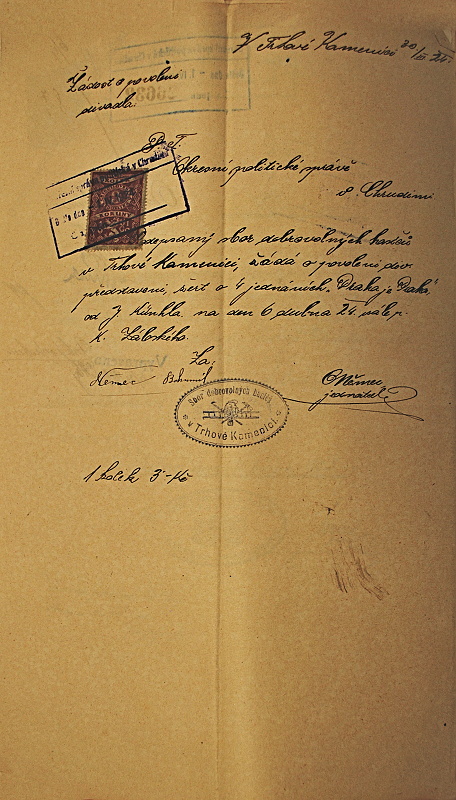 V Trhové Kamenici 30/III 24.
Žádost o povolení
divadla.
P. T.
Okresní politické správě
v Chrudimi
Podepsaný sbor dobrovolných hasičů
v Trhové Kamenici, žádá o povolení div.
představení, žert o 4 jednáních. Praka je Praka,
od J. Kühnla, na den 6 dubna 24. nálep.
K. Zálského.
Za:
Němec Bohumil
Němec
jednatel
Sbor dobrovolných hasičů
v Trhové Kamenici
1 kolek 3·-Kč